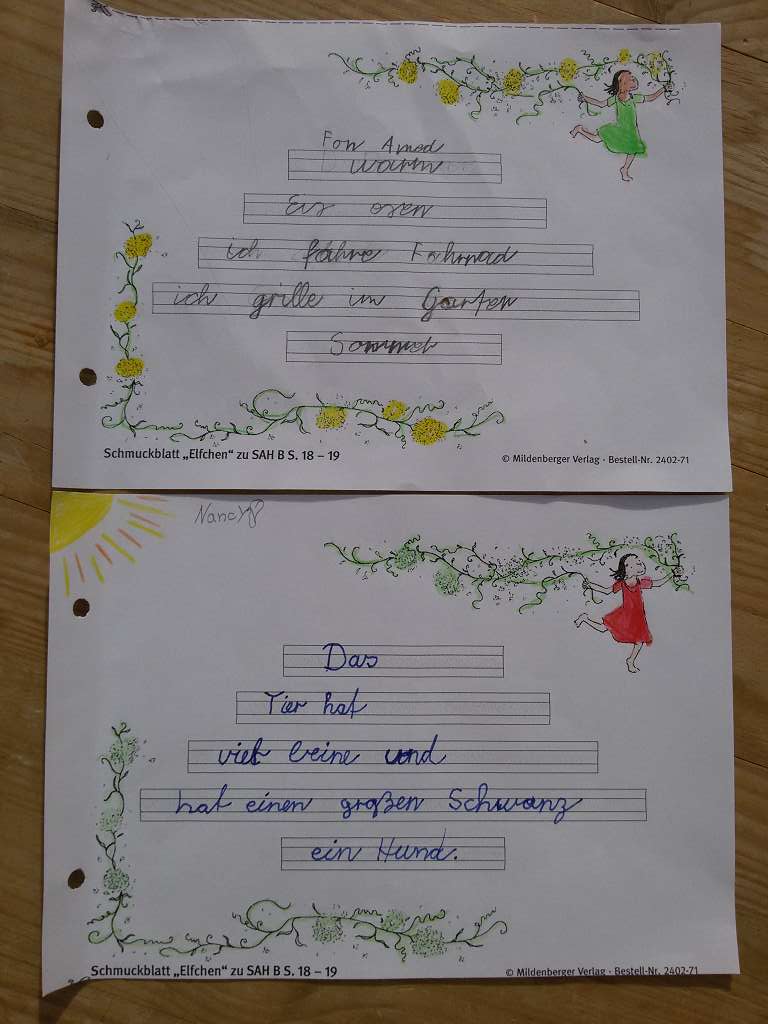 Fon Amed
warm
Eis osen
ich fahre Fahrrad
ich grille im Garten
Sommer
Schmuckblatt „Elfchen" zu SAH B S. 18 – 19
© Mildenberger Verlag · Bestell-Nr. 2402-71
Nancy
Das
Tier hat
viel beine und
hat einen großen Schwanz
ein Hund.
Schmuckblatt „Elfchen" zu SAH B S. 18 – 19
© Mildenberger Verlag · Bestell-Nr. 2402-71